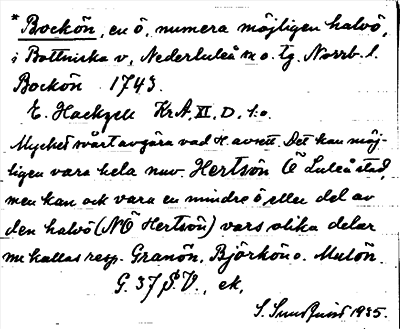 * Bockön, en ö, numera möjligen halvö,
i Bottniska v, Nederluleå sn o. tg. Norrb. l.
Bockön 1743.
E. Hackzell KrA, XI, D, 1:0.
Mycket svårt avgöra vad H. avsett. Det kan möj-
ligen vara hela nuv. Hertsön Ö Luleå stad,
men kan ock vara en mindre ö eller del av
den halvö (NÖ Hertsön) vars olika delar
nu kallas resp. Granön, Björkön o. Mulön.
G. 37 SV., ek,
S. Sundqvist 1935.